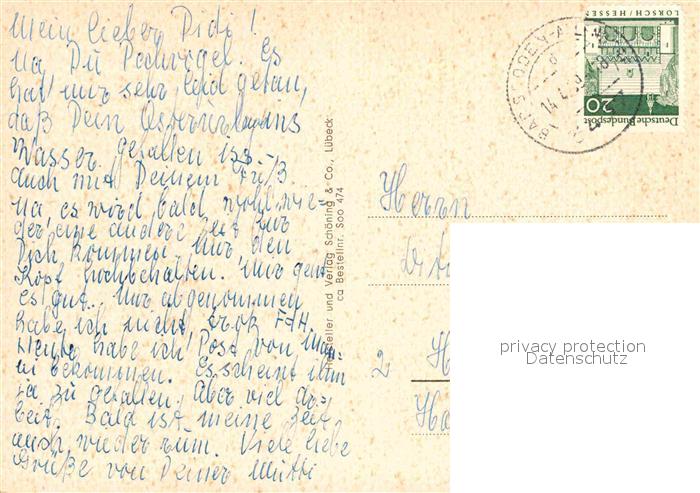 Mein lieber Didi!
Na Du Pechvogel. Es
hat mir sehr leid getan,
daß Dein Osterurlaub ins
Wasser gefallen ist. –
auch mit Deinem Fuß.
Na, es wird bald wohl wie-
der eine andere Zeit für
Dich kommen. Nur den
Kopf hochhalten. Mir geht
es gut. Nur abgenommen
habe ich nicht trotz
Heute habe ich Post von
bekommen. Es scheint ihm
ja zu gefallen. Aber viel Ar-
beit. Bald ist meine Zeit
auch wieder rum. Viele liebe
Grüße von Deiner Mutti
Hersteller und Verlag Schöning & Co., Lübeck
ca Bestellnr. Soo 474
LORSCH/HESSEN
Deutsche Bundespost
20
BAD SOODEN-
14.
Herrn
2
privacy protection
Datenschutz